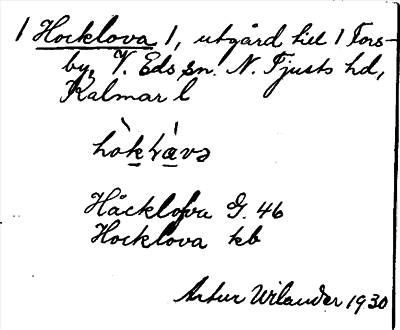 1 Hocklova 1, utgård till 1 Fors-
by, V. Eds sn. N. Tjusts hd,
Kalmar l
Håcklofva G. 46
Hocklova kb
Artur Wilander 1930